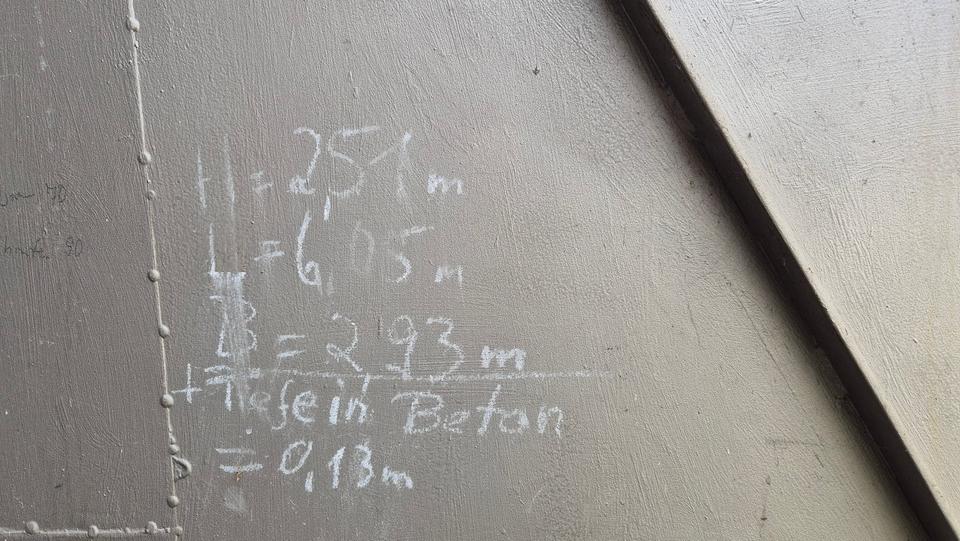 H = 2,51 m
L = 6,05 m
B = 2,93 m
+ Tiefe in Beton
= 0,13 m
70
90